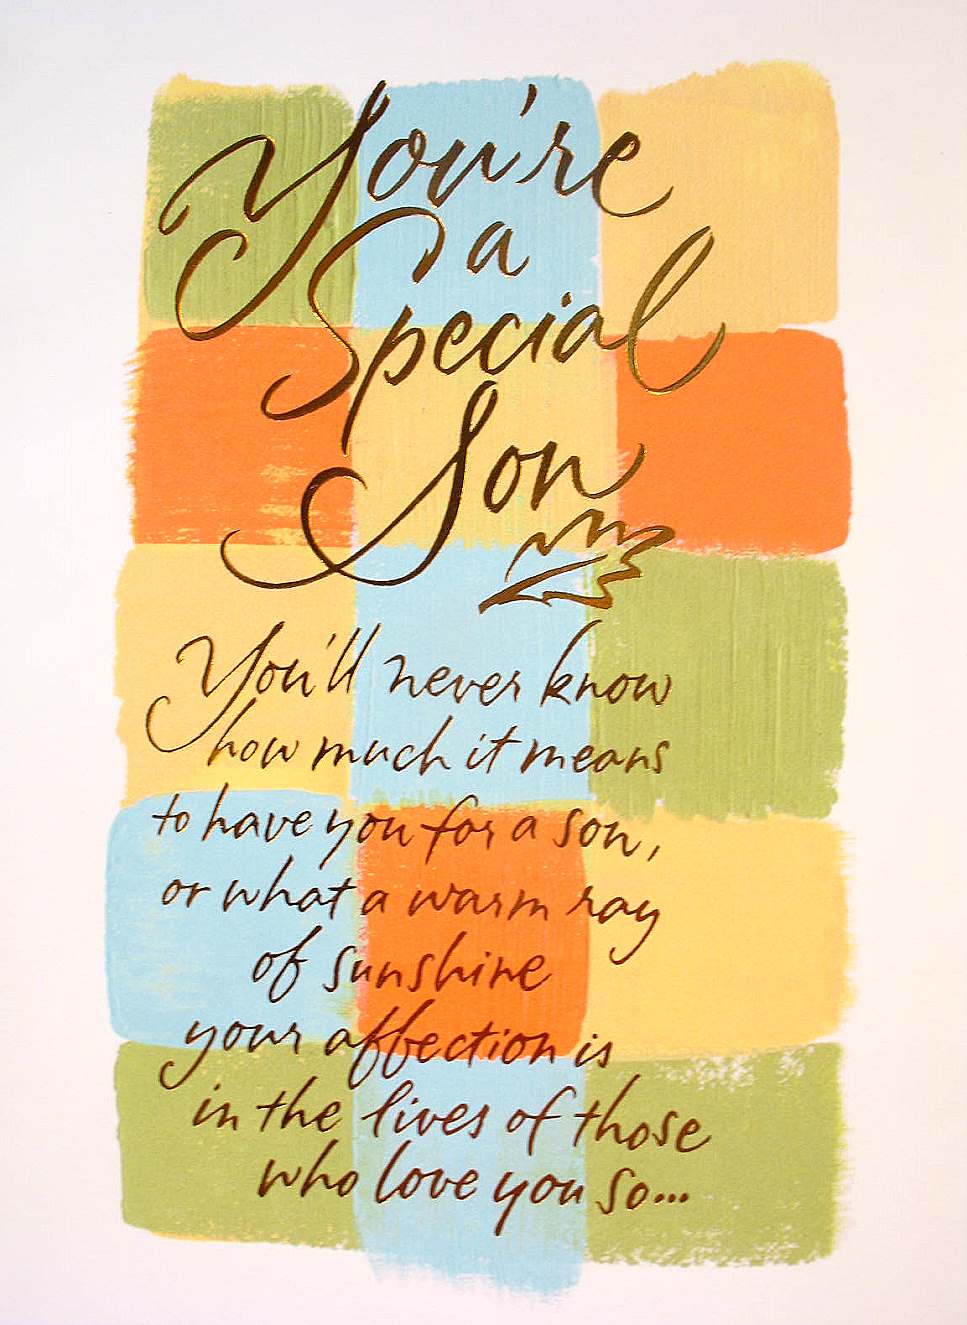 You're
a
Special
Son
You'll never know
how much it means
to have you for a son,
or what a warm ray
of sunshine
your affection is
in the lives of those
who love you so...